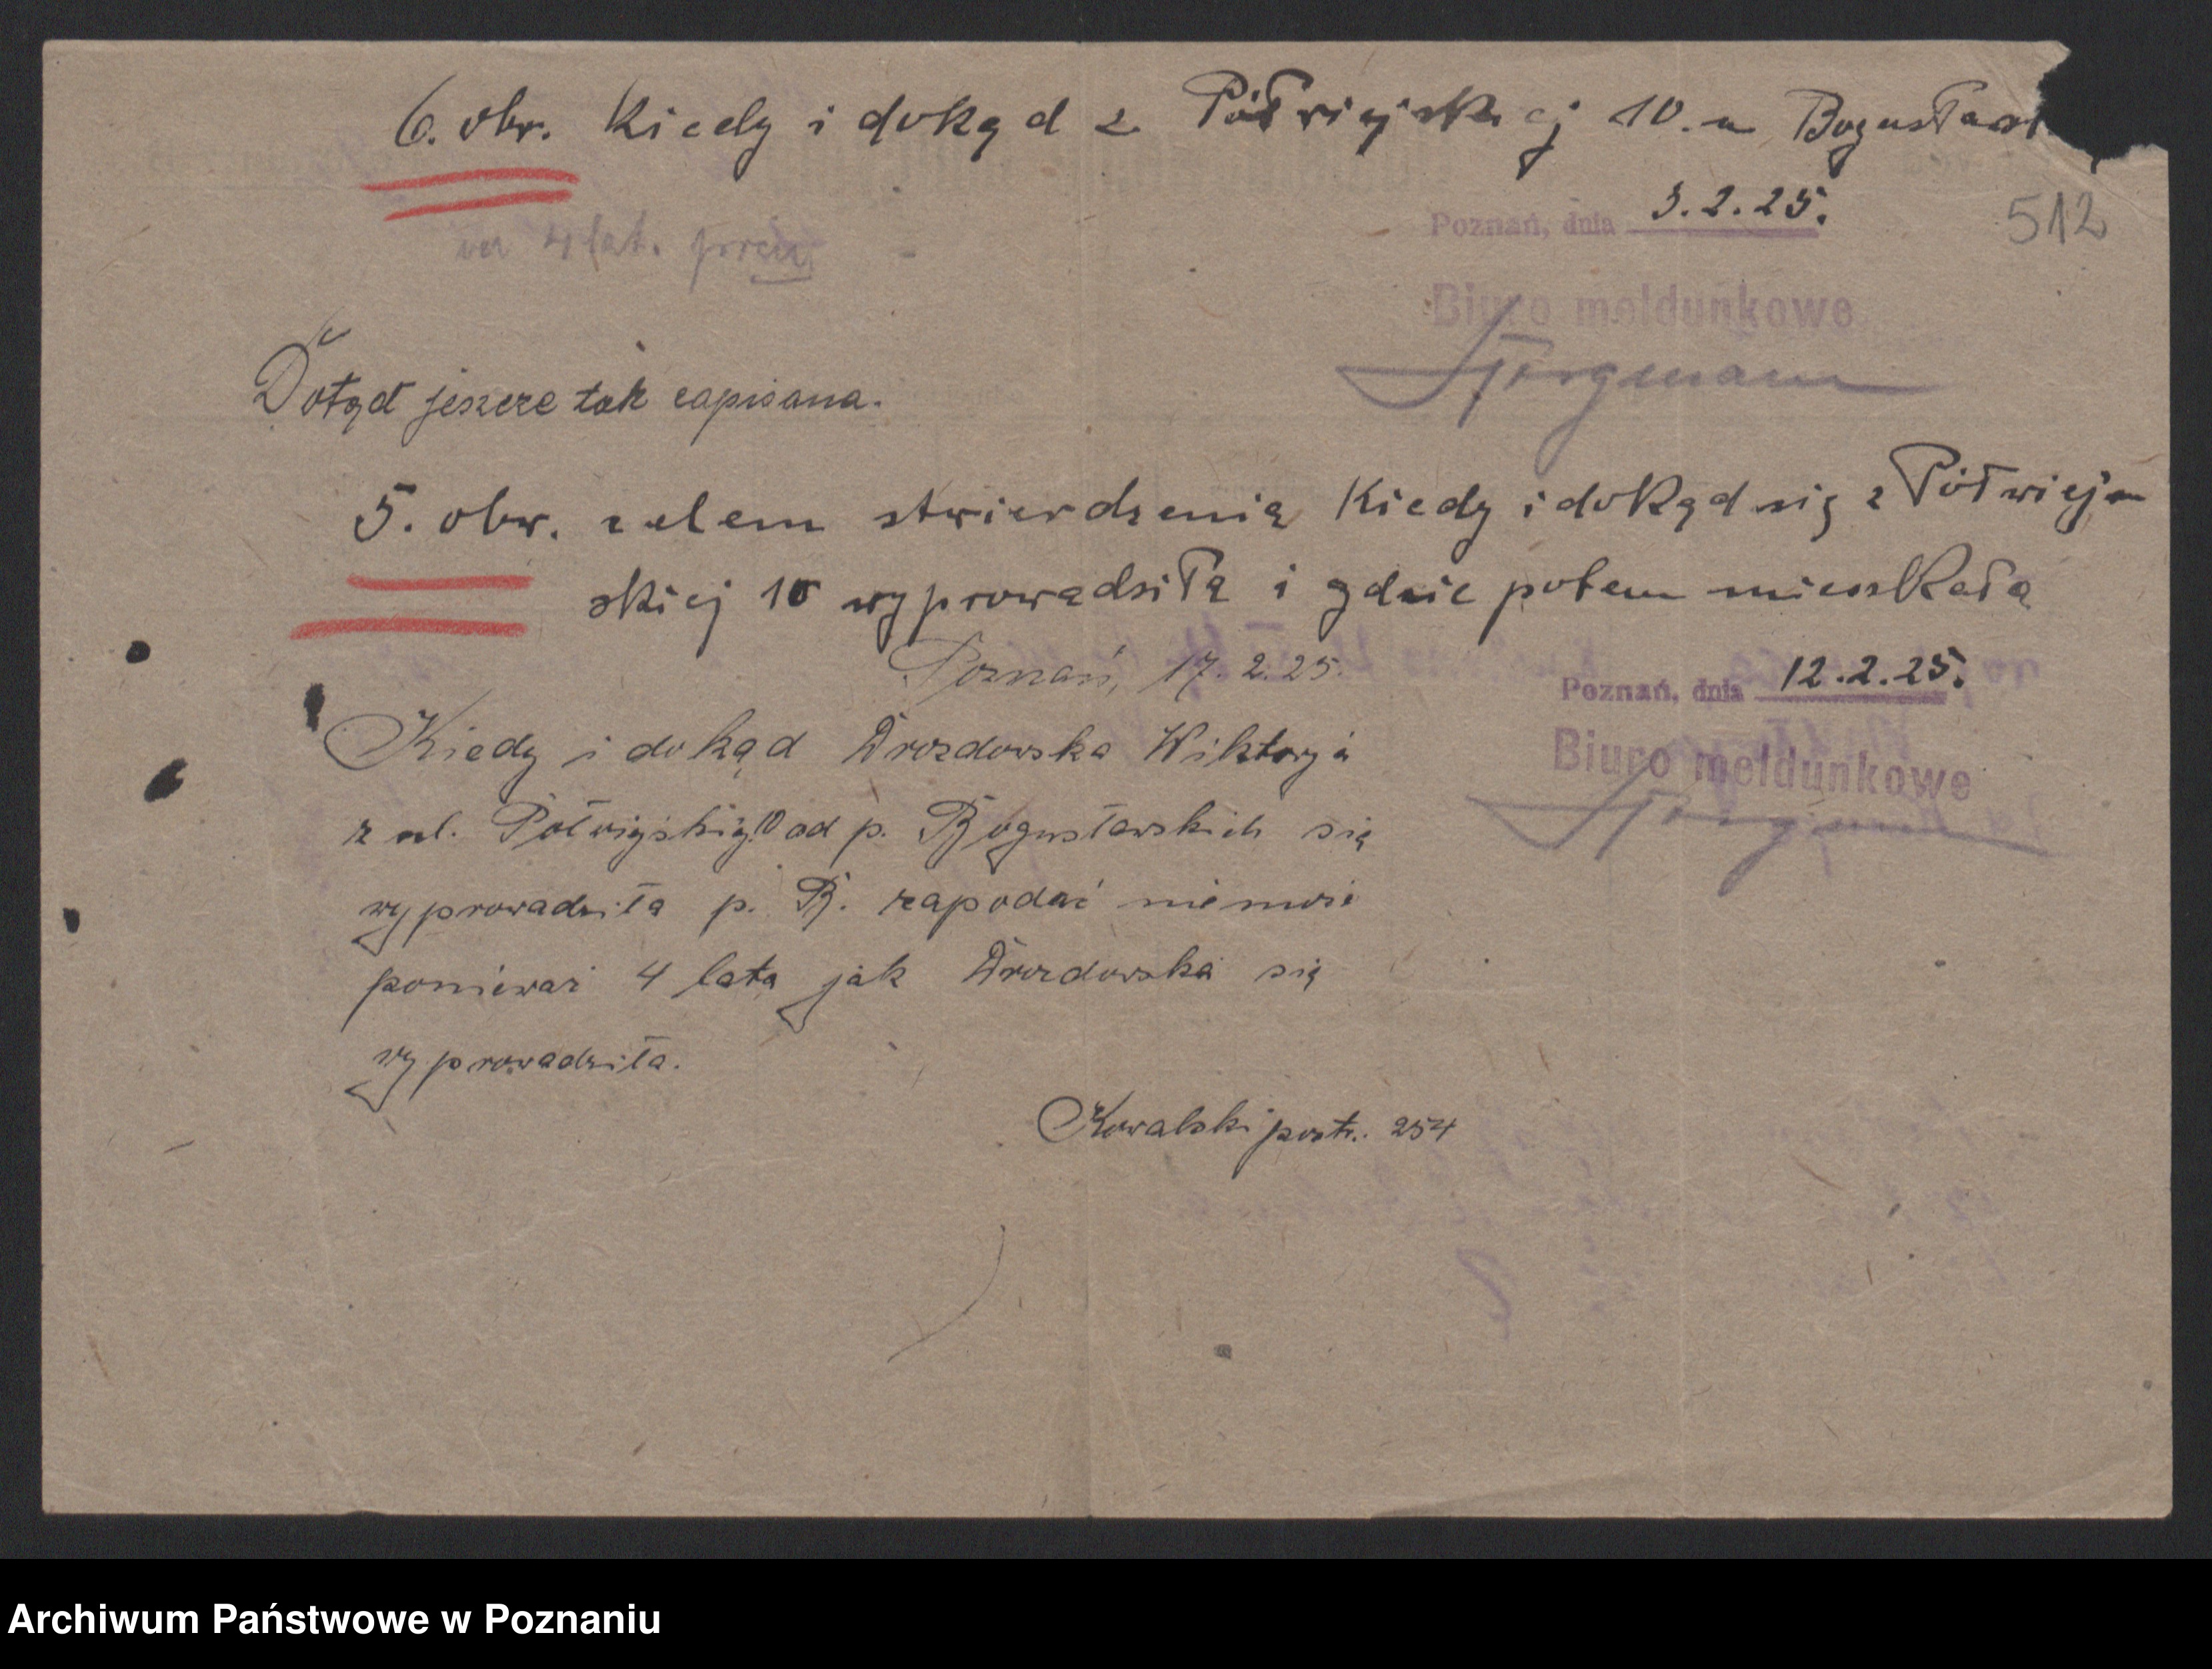 6. obw. Kiedy i dokąd z Półwiejskiej 10. u Bogusław
Poznań, dnia 3.2.25.
512
od 4 lat. prze
Biuro meldunkowe
Dotąd jeszcze tak zapisana.
5. obw. celem stwierdzenia kiedy i dokąd się z Półwiej-
skiej 10 wyprowadziła i gdzie potem mieszkała
Poznań, 17.2.25.
Poznań, dnia 12.2.25.
Biuro meldunkowe
Kiedy i dokąd Drozdowska Wiktorja
z ul. Półwiejskiej 10 od p. Bogusławskich się
wyprowadziła p. B. zapodać nie może
ponieważ 4 lata jak Drozdowska się
wyprowadziła.
Kowalski post. 254
Archiwum Państwowe w Poznaniu